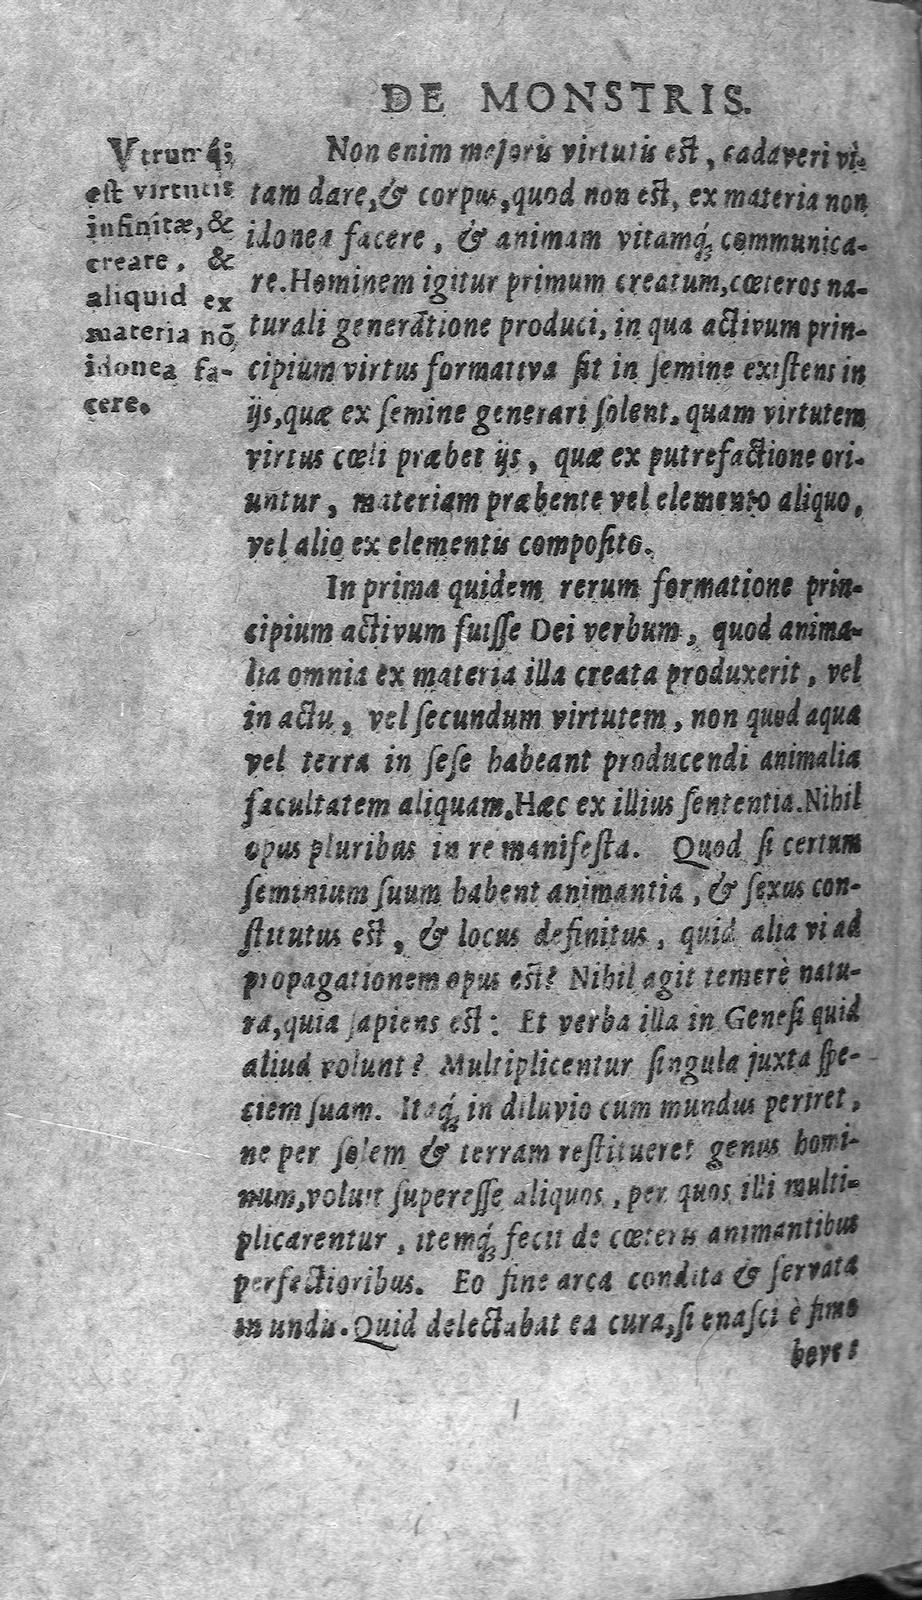 DE MONSTRIS.
Vtrumq́;
est virtutis
infinitæ, &
creare, &
aliquid ex
materia nõ
idonea fa-
cere.
Non enim majoris virtutis est, cadaveri vi-
tam dare, & corpus, quod non est, ex materia non
idonea facere, & animam vitamq́; communica-
re. Hominem igitur primum creatum, cœteros na-
turali generatione produci, in qua activum prin-
cipium virtus formativa sit in semine existens in
ijs, quæ ex semine generari solent, quam virtutem
virtus cœli præbet ijs, quæ ex putrefactione ori-
untur, materiam præbente vel elemento aliquo,
vel alio ex elementis composito.
In prima quidem rerum formatione prin-
cipium activum fuisse Dei verbum, quod anima-
lia omnia ex materia illa creata produxerit, vel
in actu, vel secundum virtutem, non quod aqua
vel terra in sese habeant producendi animalia
facultatem aliquam. Hæc ex illius sententia. Nihil
opus pluribus in re manifesta. Quod si certum
seminium suum habent animantia, & sexus con-
stitutus est, & locus definitus, quid alia vi ad
propagationem opus est? Nihil agit temerè natu-
ra, quia sapiens est: Et verba illa in Genesi quid
aliud volunt? Multiplicentur singula juxta spe-
ciem suam. Itaq́; in diluvio cum mundus periret,
ne per solem & terram restitueret genus homi-
num, voluit superesse aliquos, per quos illi multi-
plicarentur, itemq́; fecit de cœteris animantibus
perfectioribus. Eo fine arca condita & servata
in undis. Quid delectabat ea cura, si enasci è fimo
boves